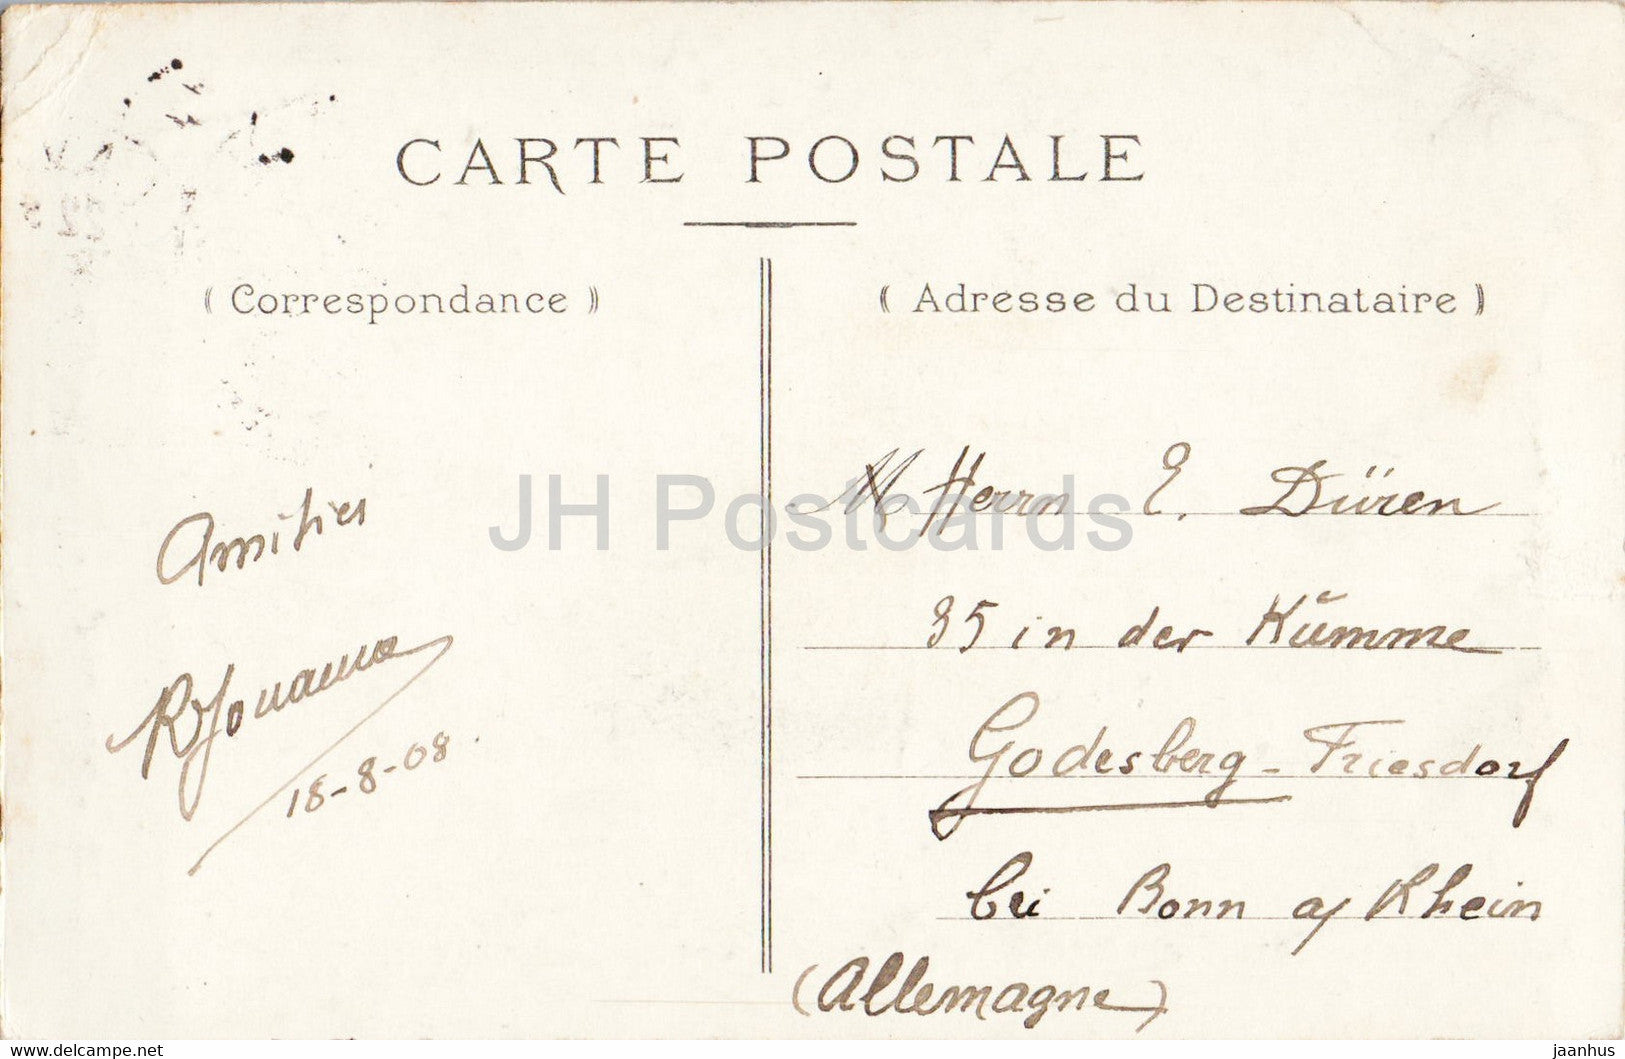 CARTE POSTALE
( Correspondance )
( Adresse du Destinataire )
Amitiés
18-8-08
M Herrn E. Düren
35 in der Kümme
Godesberg - Friesdorf
bei Bonn a/ Rhein
(Allemagne)
JH Postcards
delcampe.net
jaanhus